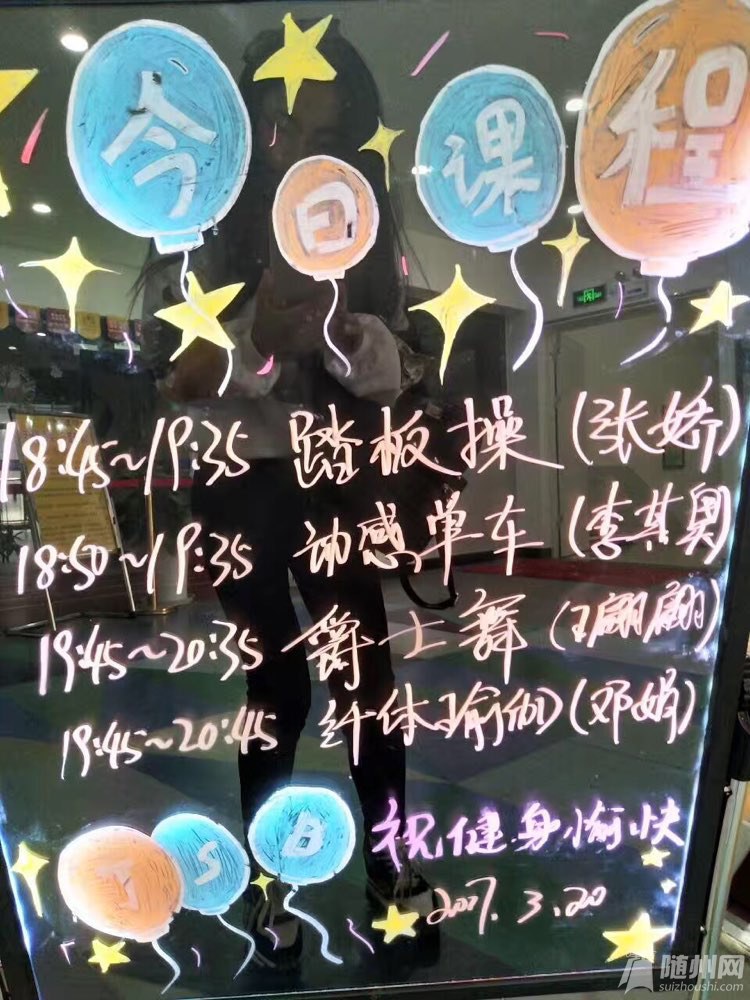 今日课程
18:45~19:35 踏板操(张娇)
18:50~19:35 动感单车(李其奥)
19:45~20:35 爵士舞(王翩翩)
19:45~20:45 纤体瑜伽(邓娟)
JSB
祝健身愉快
2017.3.20
随州网
suizhoushi.com